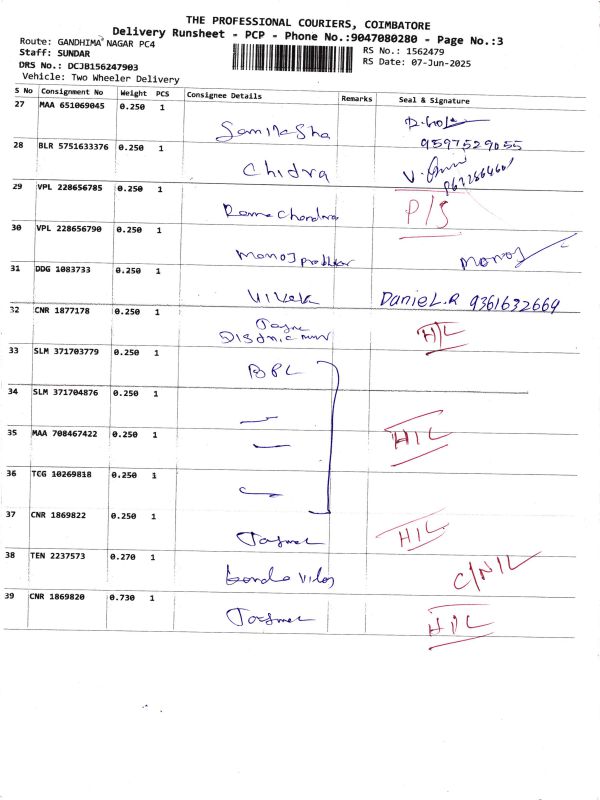 THE PROFESSIONAL COURIERS, COIMBATORE
Delivery Runsheet - PCP - Phone No.:9047080280 - Page No.:3
Route: GANDHIMA NAGAR PC4
RS No.: 1562479
Staff: SUNDAR
RS Date: 07-Jun-2025
DRS No.: DCJB156247903
Vehicle: Two Wheeler Delivery
S No Consignment No Weight PCS Consignee Details Remarks Seal & Signature
27 MAA 651069045 0.250 1
9597529055
28 BLR 5751633376 0.250 1
Chidra V.
29 VPL 228656785 0.250 1
Rama Chandra P/S
30 VPL 228656790 0.250 1
Manoj Manoj
31 DDG 1083733 0.250 1
Vivek Daniel.R 9361632669
32 CNR 1877178 0.250 1
H/L
33 SLM 371703779 0.250 1
BPL
34 SLM 371704876 0.250 1
35 MAA 708467422 0.250 1
H/L
36 TCG 10269818 0.250 1
37 CNR 1869822 0.250 1
H/L
38 TEN 2237573 0.270 1
C/N/L
39 CNR 1869820 0.730 1
H/L